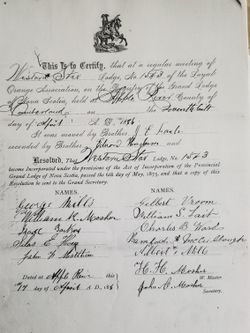 This Is to Certify, that at a regular meeting of
Western Star Lodge, No. 1543 of the Loyal
Orange Association, on the Registry of the Grand Lodge
of Nova Scotia, held at Apple River County of
Cumberland on the
day of April A. D. 189
It was moved by Brother J E
seconded by Brother
Resolved, That Western Star Lodge, No. 1543
become Incorporated under the provisions of the Act of Incorporation of the Provincial
Grand Lodge of Nova Scotia, passed the 6th day of May, 1875, and that a copy of this
Resolution be sent to the Grand Secretary.
NAMES. NAMES.
George Mills Gilbert Vroom
William R. Mosher William S. Tait
Isaac Charles B Ward
Silas E
John W Albert Mills
H. H. Mosher
W. Master
Dated at Apple River this John A. Mosher
17 day of April A D. 189 Secretary.